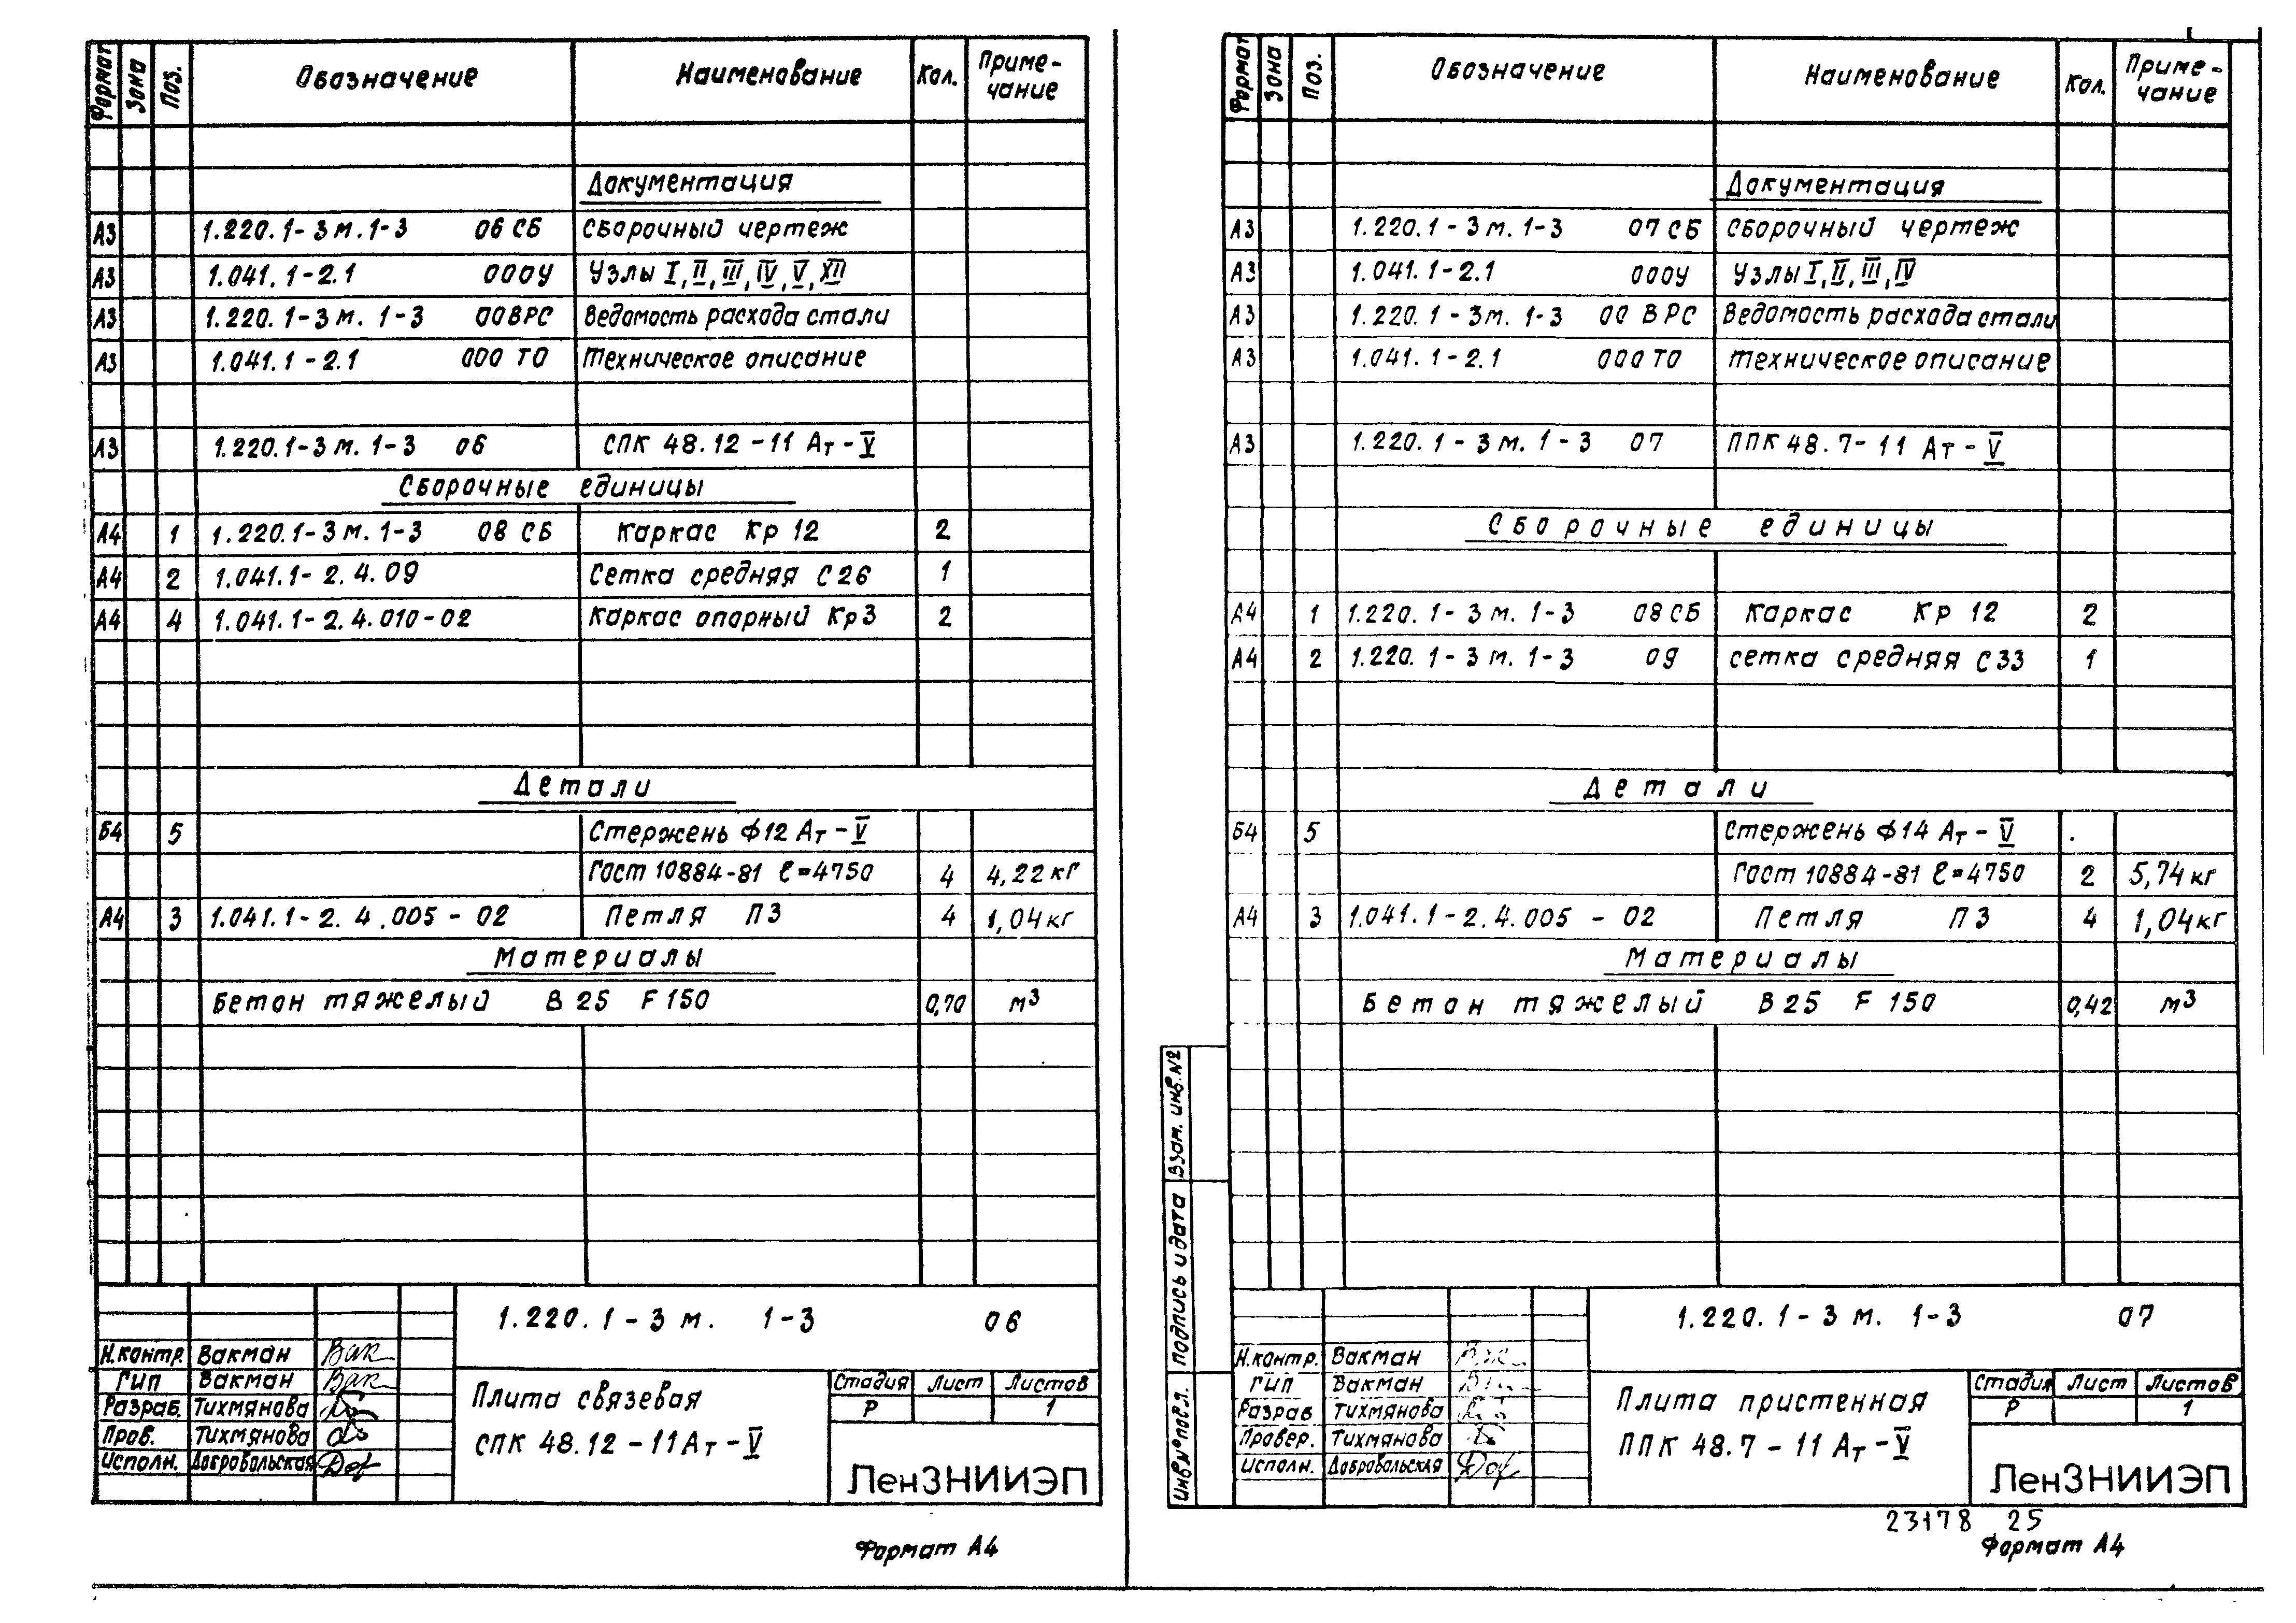 Формат Зона Поз. Обозначение Наименование Кол. Приме-
чание
Документация
А3 1.220.1-3м.1-3 06 СБ Сборочный чертеж
А3 1.041.1-2.1 000У Узлы I, II, III, IV, V, XII
А3 1.220.1-3м.1-3 00ВРС Ведомость расхода стали
А3 1.041.1-2.1 000 ТО Техническое описание
А3 1.220.1-3м.1-3 06 СПК 48.12-11 Ат-V
Сборочные единицы
А4 1 1.220.1-3м.1-3 08 СБ Каркас Кр 12 2
А4 2 1.041.1-2.4.09 Сетка средняя С26 1
А4 4 1.041.1-2.4.010-02 Каркас опорный Кр3 2
Детали
Б4 5 Стержень ф12 Ат-V
Гост 10884-81 ℓ=4750 4 4,22кг
А4 3 1.041.1-2.4.005-02 Петля П3 4 1,04кг
Материалы
Бетон тяжелый В25 F150 0,70 м³
1.220.1-3м. 1-3 06
Н.контр. Вакман
ГИП Вакман
Разраб. Тихмянова
Пров. Тихмянова
Исполн. Добровольская
Плита связевая
СПК 48.12-11Ат-V
Стадия Лист Листов
Р 1
ЛенЗНИИЭП
Формат А4
Формат Зона Поз. Обозначение Наименование Кол. Приме-
чание
Документация
А3 1.220.1-3м.1-3 07 СБ Сборочный чертеж
А3 1.041.1-2.1 000У Узлы I, II, III, IV
А3 1.220.1-3м.1-3 00 ВРС Ведомость расхода стали
А3 1.041.1-2.1 000 ТО Техническое описание
А3 1.220.1-3м.1-3 07 ППК 48.7-11 Ат-V
Сборочные единицы
А4 1 1.220.1-3м.1-3 08СБ Каркас Кр 12 2
А4 2 1.220.1-3м.1-3 09 сетка средняя С33 1
Детали
Б4 5 Стержень ф14 Ат-V
Гост 10884-81 ℓ=4750 2 5,74кг
А4 3 1.041.1-2.4.005-02 Петля П3 4 1,04кг
Материалы
Бетон тяжелый В25 F150 0,42 м³
Взам. инв.№
Подпись и дата
Инв№подл.
1.220.1-3м. 1-3 07
Н.контр. Вакман
ГИП Вакман
Разраб Тихмянова
Провер. Тихмянова
Исполн. Добровольская
Плита пристенная
ППК 48.7-11Ат-V
Стадия Лист Листов
Р 1
ЛенЗНИИЭП
23178 25
Формат А4